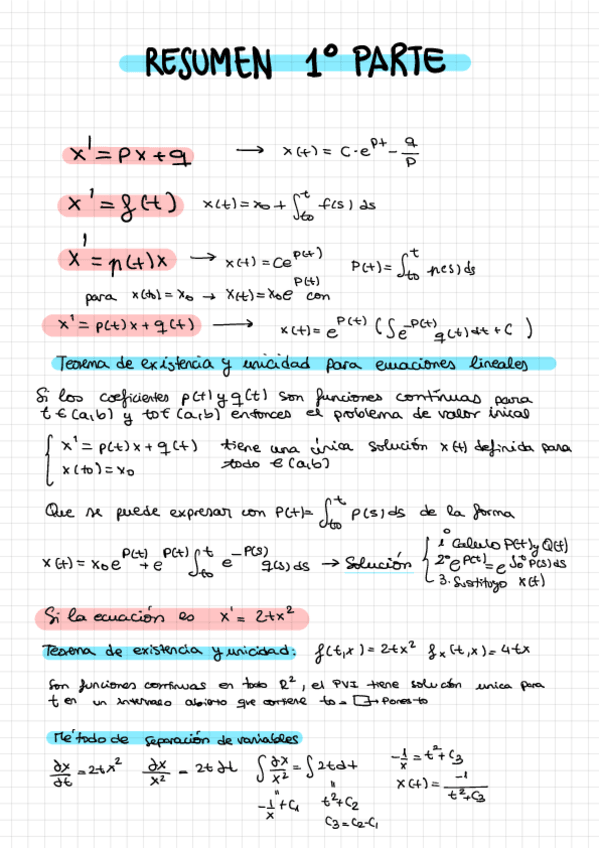 RESUMEN 1º PARTE
x' = px + q → x(t) = C·e^{pt} - q/p
x' = f(t) x(t) = x₀ + ∫_{t₀}^{t} f(s) ds
x' = p(t)x → x(t) = Ce^{P(t)} P(t) = ∫_{t₀}^{t} p(s) ds
para x(t₀) = x₀ → x(t) = x₀e^{P(t)} con
x' = p(t)x + q(t) → x(t) = e^{P(t)} (∫e^{-P(t)} q(t) dt + C)
Teorema de existencia y unicidad para ecuaciones lineales
Si los coeficientes p(t) y q(t) son funciones contínuas para
t ∈ (a,b) y t₀ ∈ (a,b) entonces el problema de valor inical
{ x' = p(t)x + q(t) tiene una única solución x(t) definida para
x(t₀) = x₀ todo ∈ (a,b)
Que se puede expresar con P(t) = ∫_{t₀}^{t} p(s) ds de la forma
x(t) = x₀e^{P(t)} + e^{P(t)} ∫_{t₀}^{t} e^{-P(s)} q(s) ds → Solución { 1º Calculo P(t) y Q(t)
2º e^{P(t)} = e^{∫₀ P(s) ds}
3. Sustituyo x(t)
Si la ecuación es x' = 2tx²
Teorema de existencia y unicidad: f(t,x) = 2tx² fₓ(t,x) = 4tx
Son funciones continuas en todo R², el PVI tiene solución unica para
t en un intervalo abierto que contiene t₀ = □ → Pones t₀
Método de separación de variables
∂x/∂t = 2tx² ∂x/x² = 2t ∂t ∫ ∂x/x² = ∫ 2t dt -1/x = t² + C₃
-1/x + C₁ t² + C₂ x(t) = -1/(t² + C₃)
C₃ = C₂ - C₁